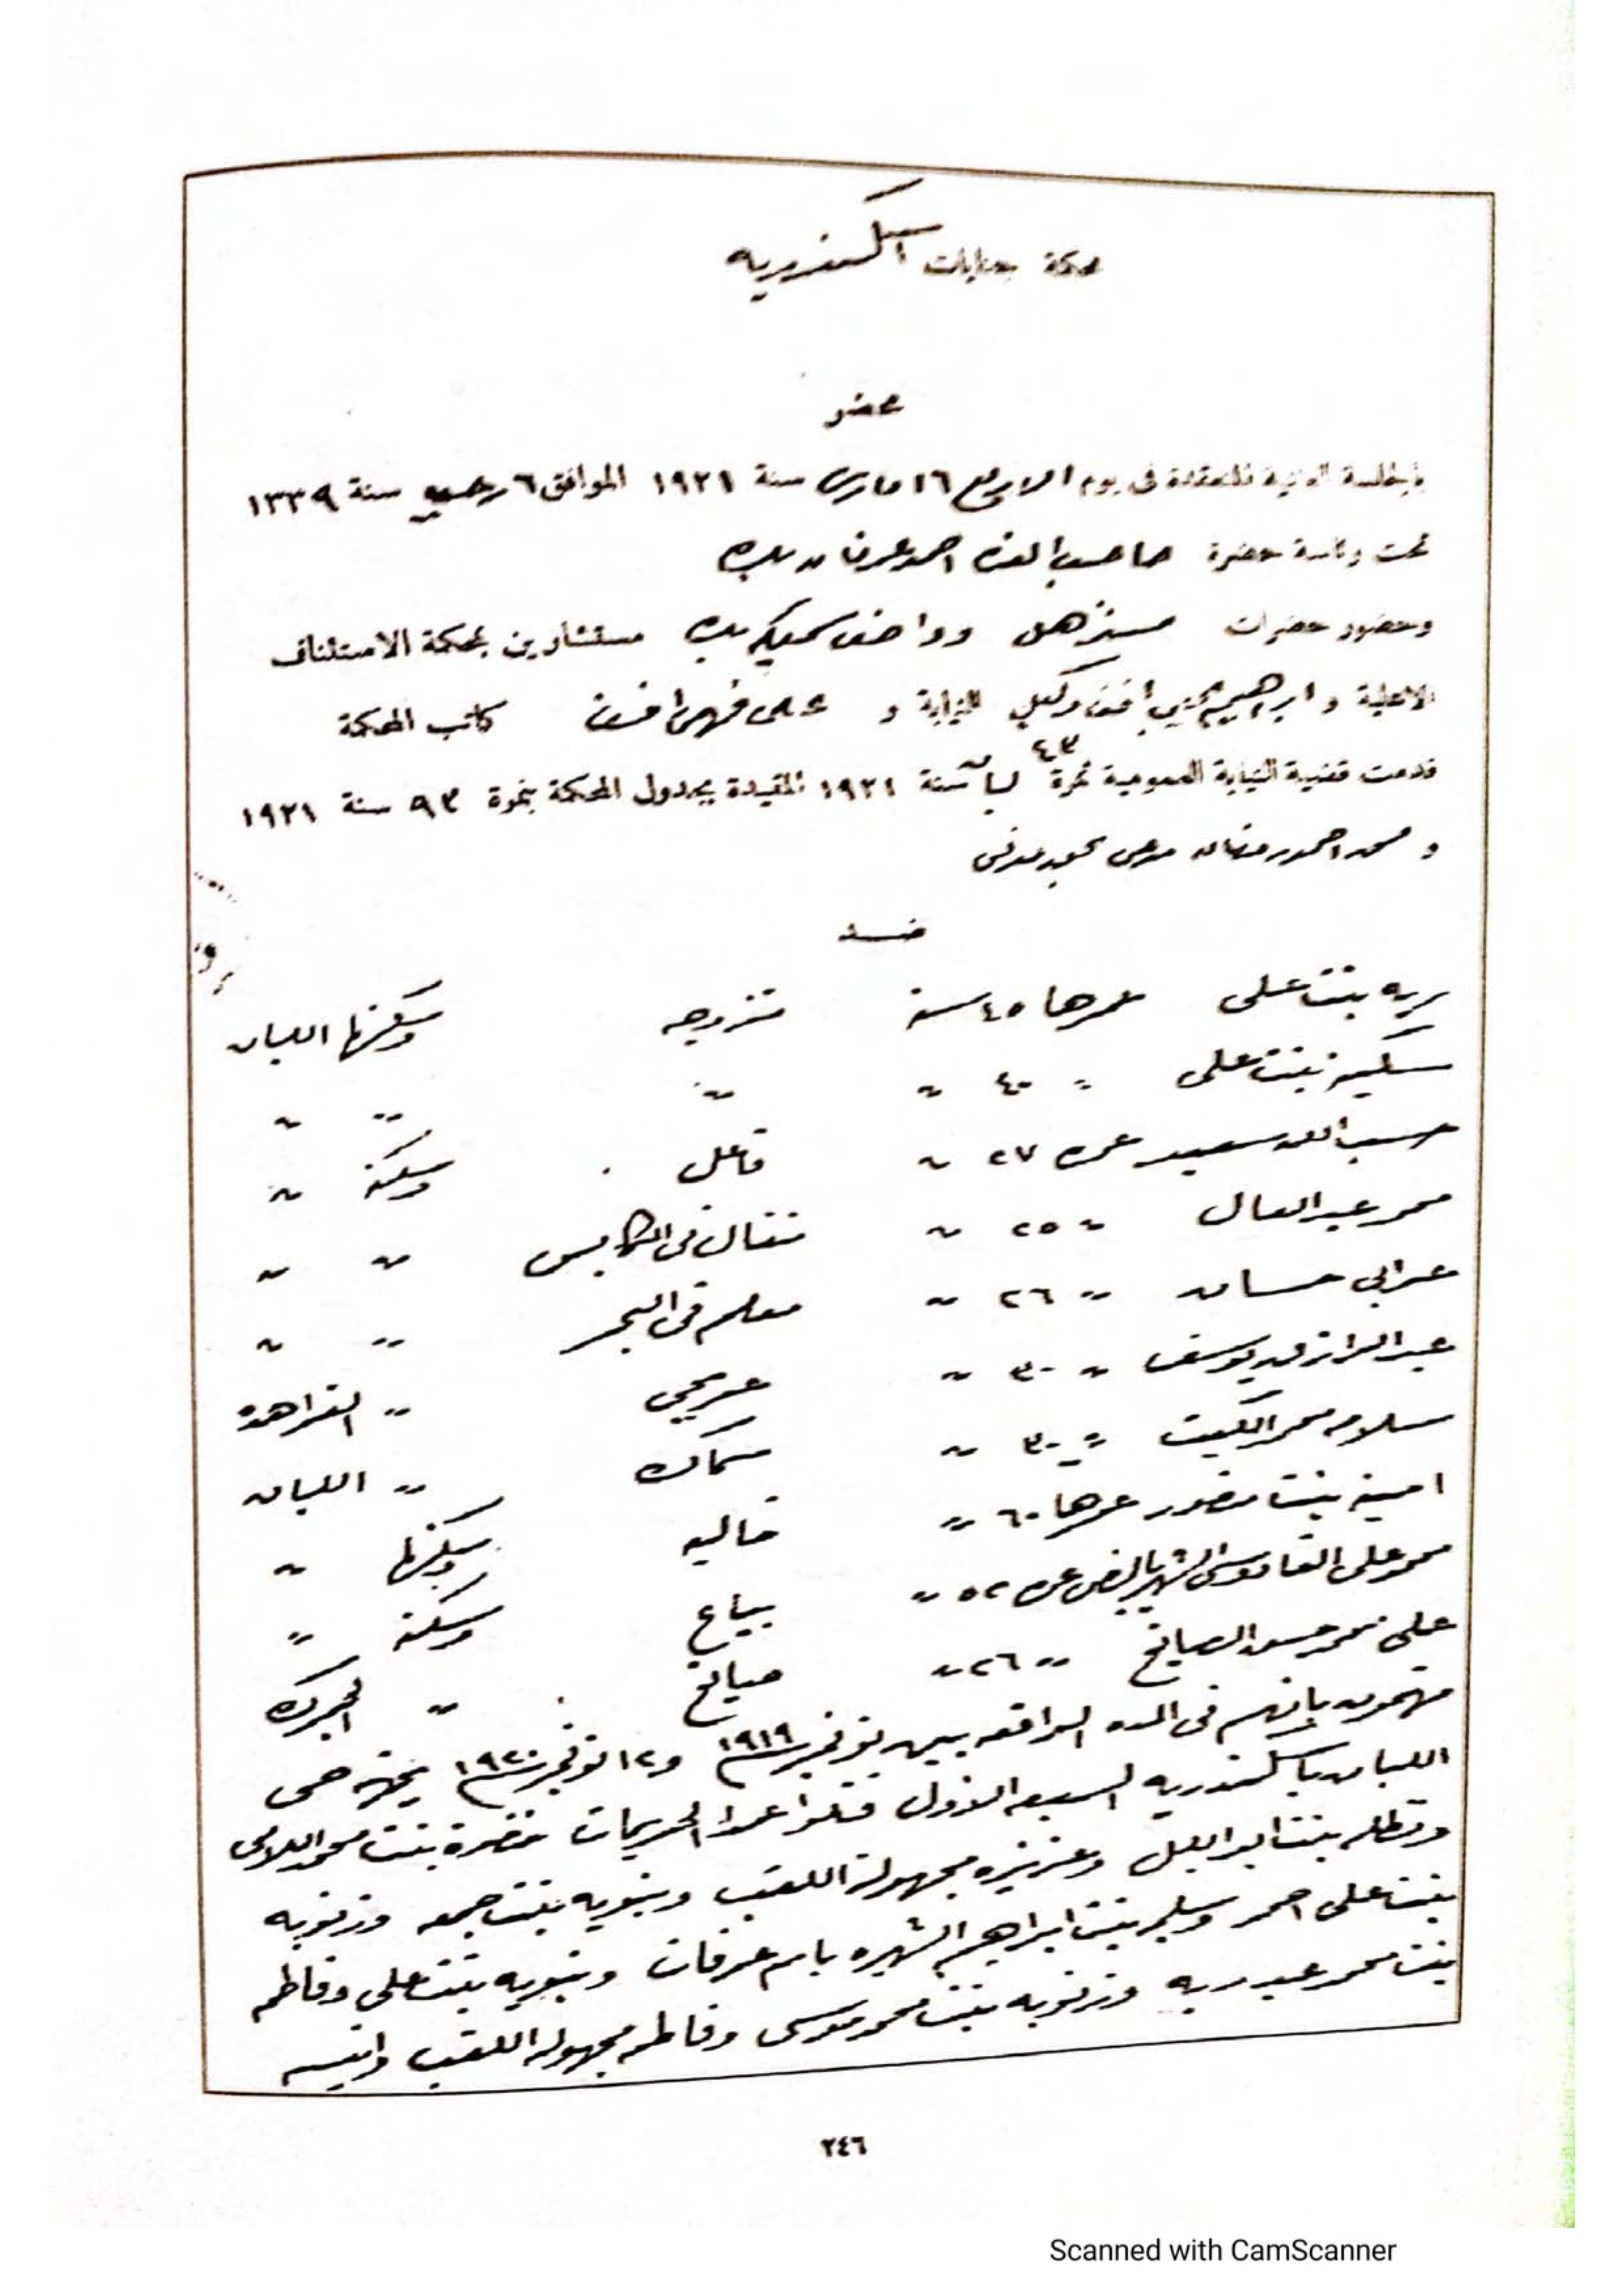 محكمة جنايات اسكندريه
محضر
بالجلسة العلنية المنعقدة فى يوم الاربع ١٦ مارس سنة ١٩٢١ الموافق ٦ رجب سنة ١٣٣٩
تحت رئاسة حضرة صاحب العزه احمد عرفان بك
وحضور حضرات مستر هل وواصف سميكه بك مستشارين بمحكمة الاستئناف
الاهلية و ابراهيم افندى وكيل النيابة و على فهمى افندى كاتب المحكمة
قدمت قضية النيابة العمومية نمرة ٤٣ لبان سنة ١٩٢١ المقيدة بجدول المحكمة بنمرة ٩٣ سنة ١٩٢١
و محمد احمد رمضان مدعى بحق مدنى
ضد
ريه بنت على عمرها ٤٥ سنة متزوجه وسكنها اللبان
سكينه بنت على " ٤٠ " " " "
حسب الله سعيد عمره ٢٧ " فاعل وسكنه "
محمد عبد العال " ٢٥ " شغال فى المكابس " "
عرابى حسان " ٢٦ " معلم فى البحر " "
عبد الرازق يوسف " ٣٠ " عربجى " الفراهده
سلامه محمد الكبت " ٣٠ " سماك " اللبان
امينه بنت منصور عمرها ٦٠ " خاليه وسكنها "
محمد على القادوسى الشهير بالنص عمره ٥٢ " بياع وسكنه "
على محمد حسن الصايغ " ٢٦ " صايغ " الجمرك
متهمون بانهم فى المده الواقعه بين نوفمبر سنة ١٩١٩ و ١٢ نوفمبر سنة ١٩٢٠ بجهة حى
اللبان باسكندريه السبعه الاول قتلوا عمدا الحريمات خضرة بنت محمد اللامى
ونظله بنت ابو الليل وعزيزه مجهولة اللقب ونبويه بنت جمعه وزنوبه
بنت على احمد وسليمه بنت ابراهيم الشهيره بام عرفات ونبويه بنت على وفاطمه
بنت محمد عبد ربه وزنوبه بنت محمد موسى وفاطمه مجهولة اللقب وانيسه
٢٤٦
Scanned with CamScanner